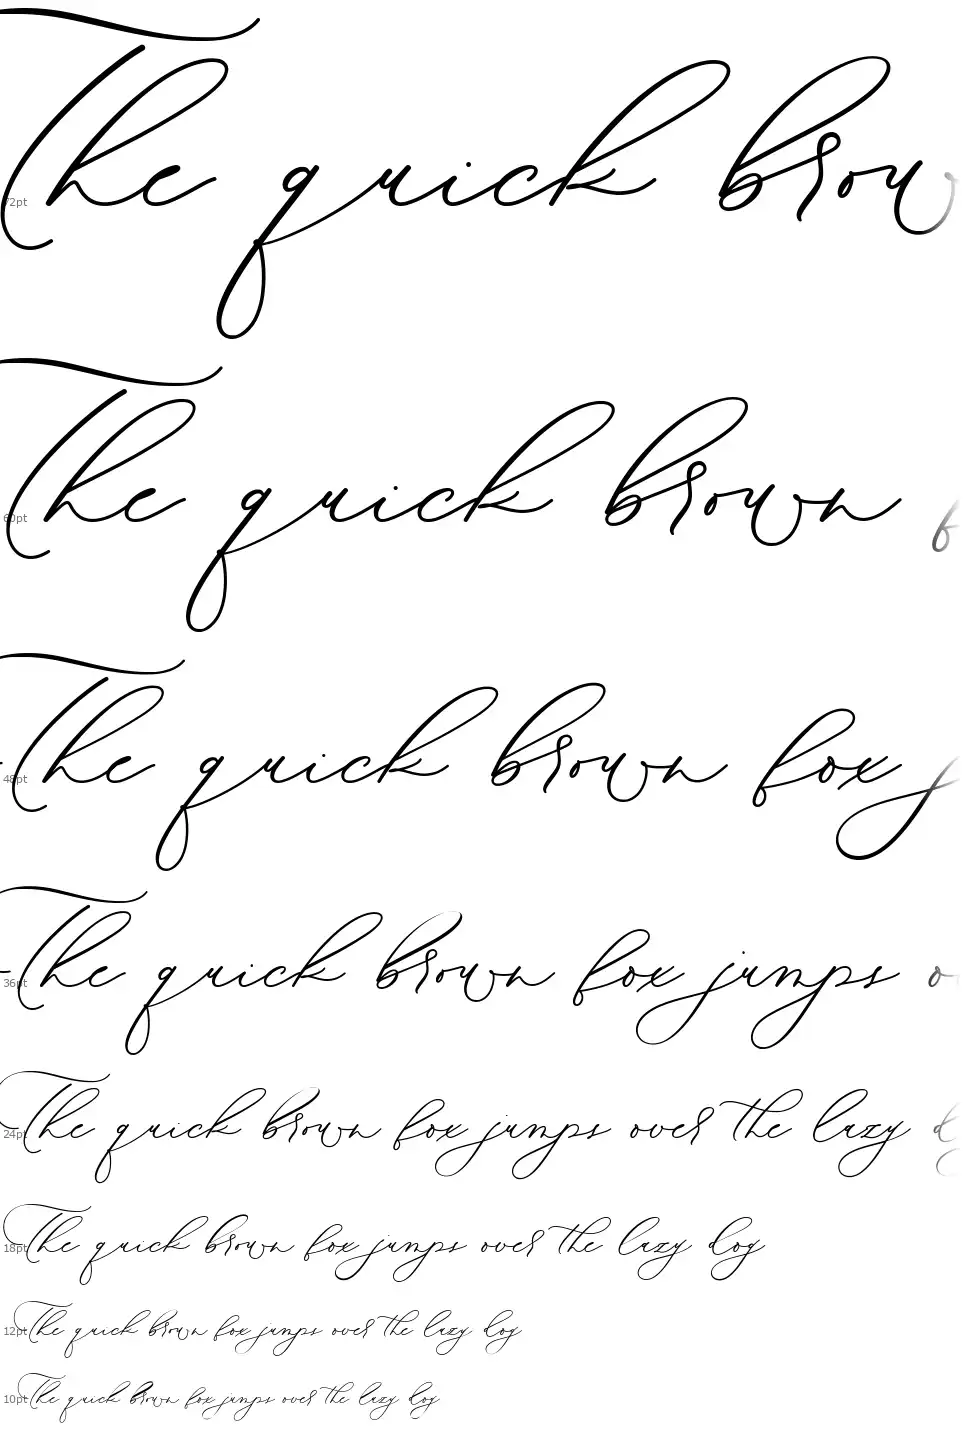 72pt The quick brow
60pt The quick brown f
48pt The quick brown fox j
36pt The quick brown fox jumps o
24pt The quick brown fox jumps over the lazy d
18pt The quick brown fox jumps over the lazy dog
12pt The quick brown fox jumps over the lazy dog
10pt The quick brown fox jumps over the lazy dog